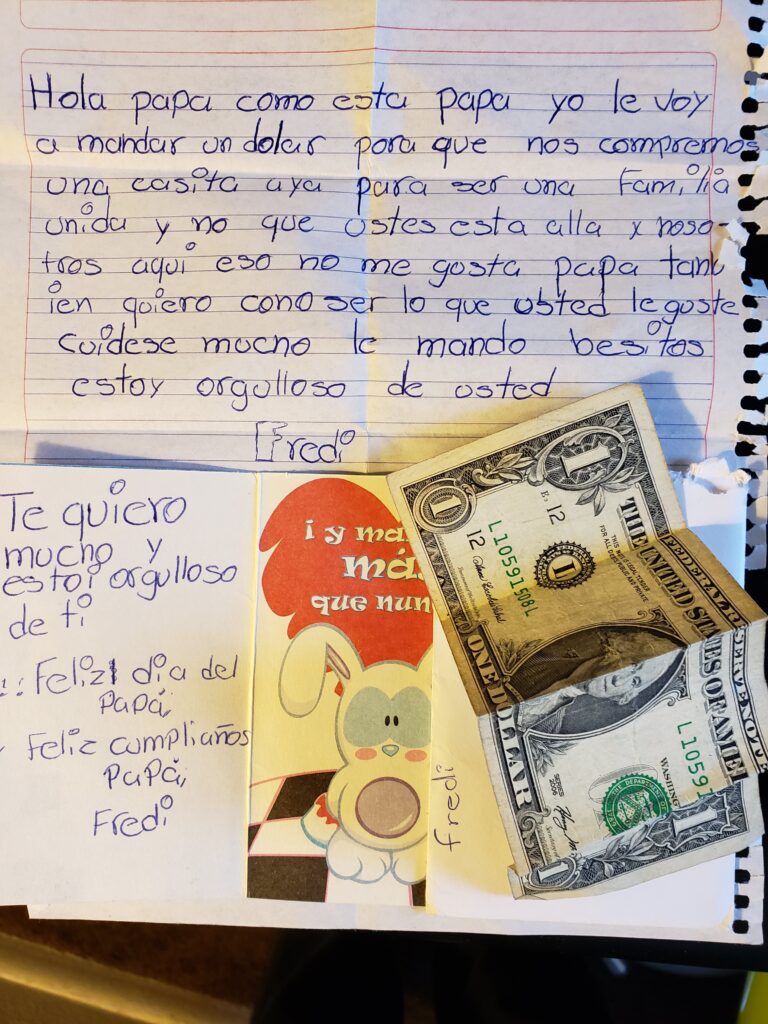 Hola papa como esta papa yo le voy
a mandar un dolar para que nos compremos
una casita aya para ser una Familia
unida y no que ustes esta alla x noso
tros aqui eso no me gosta papa tanb
ien quiero cono ser lo que usted le guste
cuidese mucho le mando besitos
estoy orgulloso de usted
Fredi
Te quiero
mucho y
estoi orgulloso
de ti
Feliz dia del
Papá,
Feliz cumpliaños
PaPá,
Fredi
¡ y ma
más
que nun
fredi
FEDERAL RESERVE NOTE
THE UNITED STATES OF AME
THIS NOTE IS LEGAL TENDER
FOR ALL DEBTS, PUBLIC AND PRIVATE
E 12
12
L10591508L
L 1059
WASHING
SERIES
2006
ONE DOLLAR
1
1
1
1